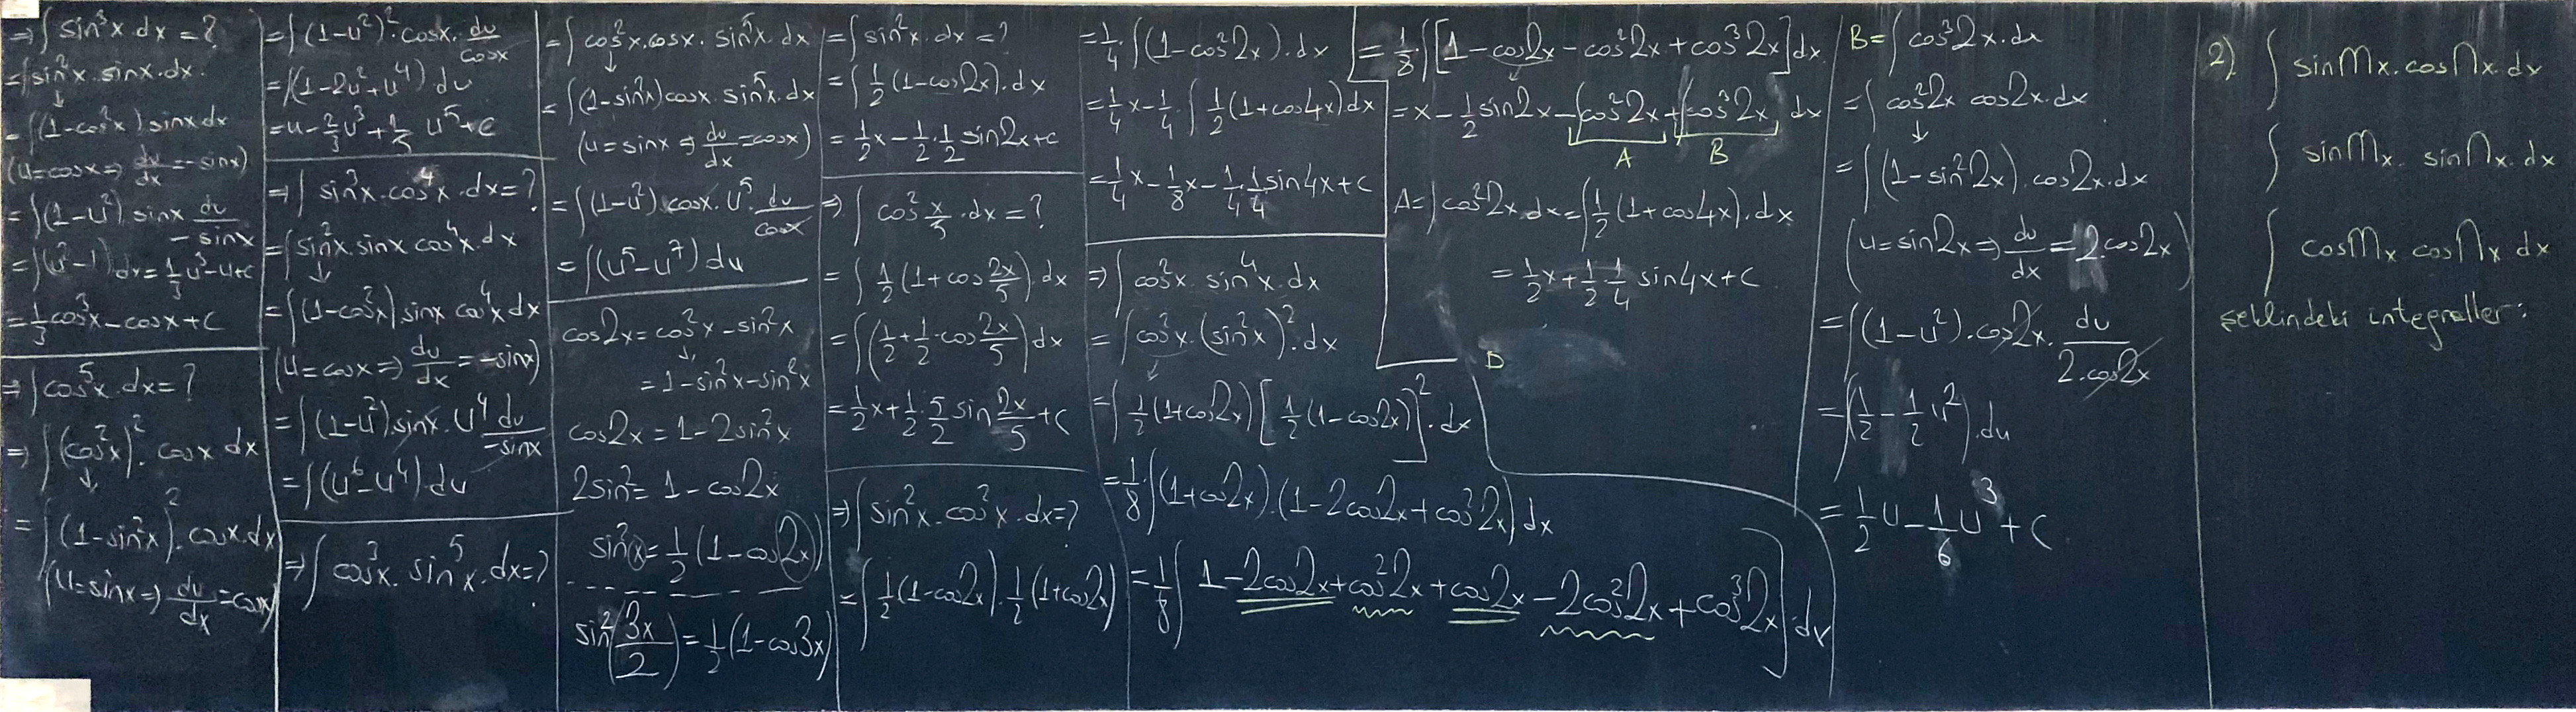 ⇒ ∫ sin³x dx = ?
= ∫ sin²x . sinx . dx.
= ∫ (1-cos²x) sinx dx
(u=cosx ⇒ du/dx = -sinx)
= ∫ (1-u²) sinx du/-sinx
= ∫ (u²-1) dx = 1/3 u³-u+c
= 1/3 cos³x - cosx + C
⇒ ∫ cos⁵x . dx = ?
⇒ ∫ (cos²x)² . cosx dx
= ∫ (1-sin²x)² . cosx . dx
(u=sinx ⇒ du/dx = cosx)
= ∫ (1-u²)² . cosx . du/cosx
= ∫ (1-2u²+u⁴) du
= u - 2/3 u³ + 1/5 u⁵ + c
⇒ ∫ sin³x . cos⁴x . dx = ?
= ∫ sin²x . sinx cos⁴x . dx
= ∫ (1-cos²x) . sinx cos⁴x dx
(u=cosx ⇒ du/dx = -sinx)
= ∫ (1-u²) . sinx . u⁴ du/-sinx
= ∫ (u⁶-u⁴) . du
⇒ ∫ cos³x . sin⁵x . dx = ?
= ∫ cos²x . cosx . sin⁵x . dx
= ∫ (1-sin²x) cosx . sin⁵x . dx
(u=sinx ⇒ du/dx = cosx)
= ∫ (1-u²) cosx . u⁵ . du/cosx
= ∫ (u⁵-u⁷) du
cos2x = cos²x - sin²x
= 1-sin²x-sin²x
cos2x = 1-2sin²x
2sin² = 1-cos2x
sin²x = 1/2 (1-cos2x)
sin²(3x/2) = 1/2 (1-cos3x)
= ∫ sin²x . dx = ?
= ∫ 1/2 (1-cos2x) . dx
= 1/2 x - 1/2 . 1/2 sin2x + c
⇒ ∫ cos² x/5 . dx = ?
= ∫ 1/2 (1+cos 2x/5) . dx
= ∫ (1/2 + 1/2 . cos 2x/5) dx
= 1/2 x + 1/2 . 5/2 sin 2x/5 + C
⇒ ∫ sin²x . cos²x . dx = ?
= ∫ 1/2 (1-cos2x) . 1/2 (1+cos2x)
= 1/4 . ∫ (1-cos²2x) . dx
= 1/4 x - 1/4 . ∫ 1/2 (1+cos4x) dx
= 1/4 x - 1/8 x - 1/4 . 1/4 sin4x + C
⇒ ∫ cos²x . sin⁴x . dx
= ∫ cos²x . (sin²x)² . dx
= ∫ 1/2 (1+cos2x) [1/2 (1-cos2x)]² . dx
= 1/8 ∫ (1+cos2x) . (1-2cos2x+cos²2x) dx
= 1/8 ∫ [1-2cos2x+cos²2x+cos2x-2cos²2x+cos³2x] dx
= 1/8 . ∫ [1-cos2x-cos²2x+cos³2x] dx
= x - 1/2 sin2x - ∫ cos²2x + ∫ cos³2x dx
A B
A = ∫ cos²2x . dx = ∫ 1/2 (1+cos4x) . dx
= 1/2 x + 1/2 . 1/4 sin4x + C
D
B = ∫ cos³2x . dx
= ∫ cos²2x cos2x . dx
= ∫ (1-sin²2x) . cos2x . dx
(u=sin2x ⇒ du/dx = 2.cos2x)
= ∫ (1-u²) . cos2x . du/2.cos2x
= ∫ (1/2 - 1/2 u²) . du
= 1/2 u - 1/6 u³ + C
2) ∫ sinmx . cosnx . dx
∫ sinmx . sinnx . dx
∫ cosmx cosnx dx
şeklindeki integraller: